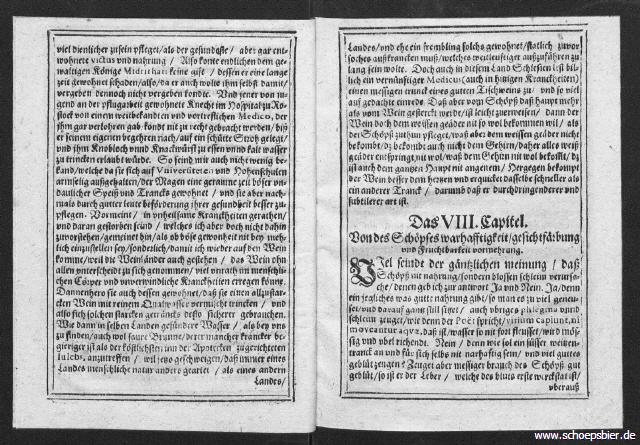 viel dienlicher zu sein pfleget/als der gesündaste / aber gar ent-
wohnete victus und nahrung / Also konte endlichen dem ge-
waltigen Könige Midridati keine gift / dessen er eine lange
zeit gewohnet schaden/also/da er auch wolte ihm selbst damit/
vergeben dennoch nicht vergeben konte. Und jener von ju-
gend an der pflugarbeit gewohnete Knecht im Hospital zu Ro-
stock von einem weitbekandten und vortreflichen Medico, der
ihm gar verlohren gab, konde nit zu recht gebracht werden/ biß
er seinem eigenen begehren nach/auf ein schütte Stroh gelegt/
und ihm Knobloch unnd Knackwürst zu essen unnd kalt wasser
zu trincken erlaubt würde. So seind mir auch nicht wenig be-
kand/welche da sie sich auf Vniversiteten und Hohenschulen
armselig aufgehalten/der Magen eine geraume zeit böser un-
daulicher Speiß und Trancks gewohnet / und sie aber nach-
mals durch gutter leute beförderung ihrer gesundheit besser zu-
pflegen. Vermeint / in unheilsame Kranckheiten gerathen/
und daran gestorben seind / welches ich aber doch nicht dahin
zuverstehen/ gemeinet bin/als ob böse gewonheit nit bey mehr-
lich einzustellen sey/sonderlich/damit ich wieder auf den Wein
komme/weil die Weinländer auch gestehen / das Wein ohn
allen unterscheidt zu sich genommen/ viel unraht im menschli-
chen Cörper und unverwindliche Kranckheiten erregen könne.
Dannenhero sie auch dessen gewohnet/daß sie einen allzustar-
cken Wein mit reinem Quallwasser vermischt trincken / und
also sich solchen starcken getrancks desto sicherer gebrauchen.
Wie dann in selben Landen gesündere Wasser / als bey uns
zu finden/auch wol saure Brunne/derer mancher krancker be-
gieriger ist/als der köstlichsten/inn der Apotecken zugerichteten
Iulebs, anzutreffen / wil jetzo geschweigen/daß immer eines
Landes menschliche natur anders geartet / als eines andern
Landes/
Landes/und ehe ein frembling solchs gewohnet/statlich zuvor
solches außtrancken muß/welches weitleuftiger außzuführen zu
lang sein wolte. Doch auch in diesem Land Schlesien lest bil-
lich ein vernünfiger Medicus (auch in hitzigen Kranckheiten)
einen messigen trunck eines gutten Tischweins zu/ und so viel
auf gedachte einrede. Daß aber vom Schöpß daß haupt mehr
als vom Wein gestercket werde/ist leicht zu erweisen/ dann der
Wein doch dem weissen geäder nit so wol bekommen wil / als
der Schöpß zuthun pfleget/ waß aber dem weissen geäder nicht
bekombt/dz bekombt auch nicht dem Gehirn/daher alles weiß
geäder entspringt/nit wol/waß dem Gehirn nit wol bekombt/dz
ist auch dem gantzen Haupt nit angenem/ Hergegen bekompt
der Wein besser dem hertzen und erquicket dasselbe schneller als
ein anderer Tranck / darumb daß er durchdringenderer und
subtilerer art ist.
Das VIII. Capitel.
Von des Schöpses warhafftigkeit/gesichtfärbung
und Fruchtbarkeit vermehrung.
VJel seindt der gäntzlichen meinung / daß
Schöpß nit nahrung/sondern blossen schleim verursa-
che/denen geb ich zur antwort Ja und Nein. Ja/denn
ein jegliches was gutte nahrung gibt/so man es zu viel genue-
set/und darauf gantz still sitzet / auch übriges phlegma unnd
schleim zeuget/wie denn der Poët spricht/vitium capiunt, ni
moveantur aquæ, daß ist/wasser so nit fort fleusset/wird müf-
sig und übel riechendt. Nein / denn wie sol ein süsser weitzen-
tranck an und für sich selbs nit narhaftig sein/und viel guttes
geblüt zeugen? Zeuget aber messiger brauch des Schöpß gut
geblüt/so ist er der Leber / welche des bluts erste wirckstat ist/
überauß
www.schoepsbier.de